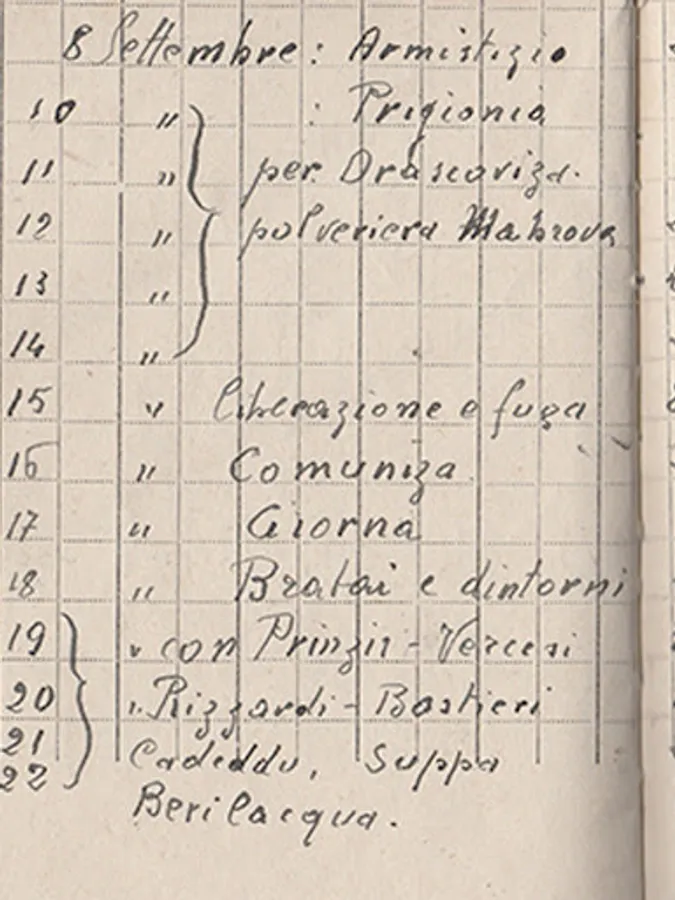 8 Settembre : Armistizio
10 " : Prigionia
11 " per Drascoviza.
12 " polveriera Mabrova
13 "
14 "
15 " liberazione e fuga
16 " Comuniza
17 " Giorna
18 " Bratai e dintorni
19 " con Prinzii - Vercesi
20 " Rizzardi - Bastieri
21 Cadeddu, Suppa
22 Berilacqua.